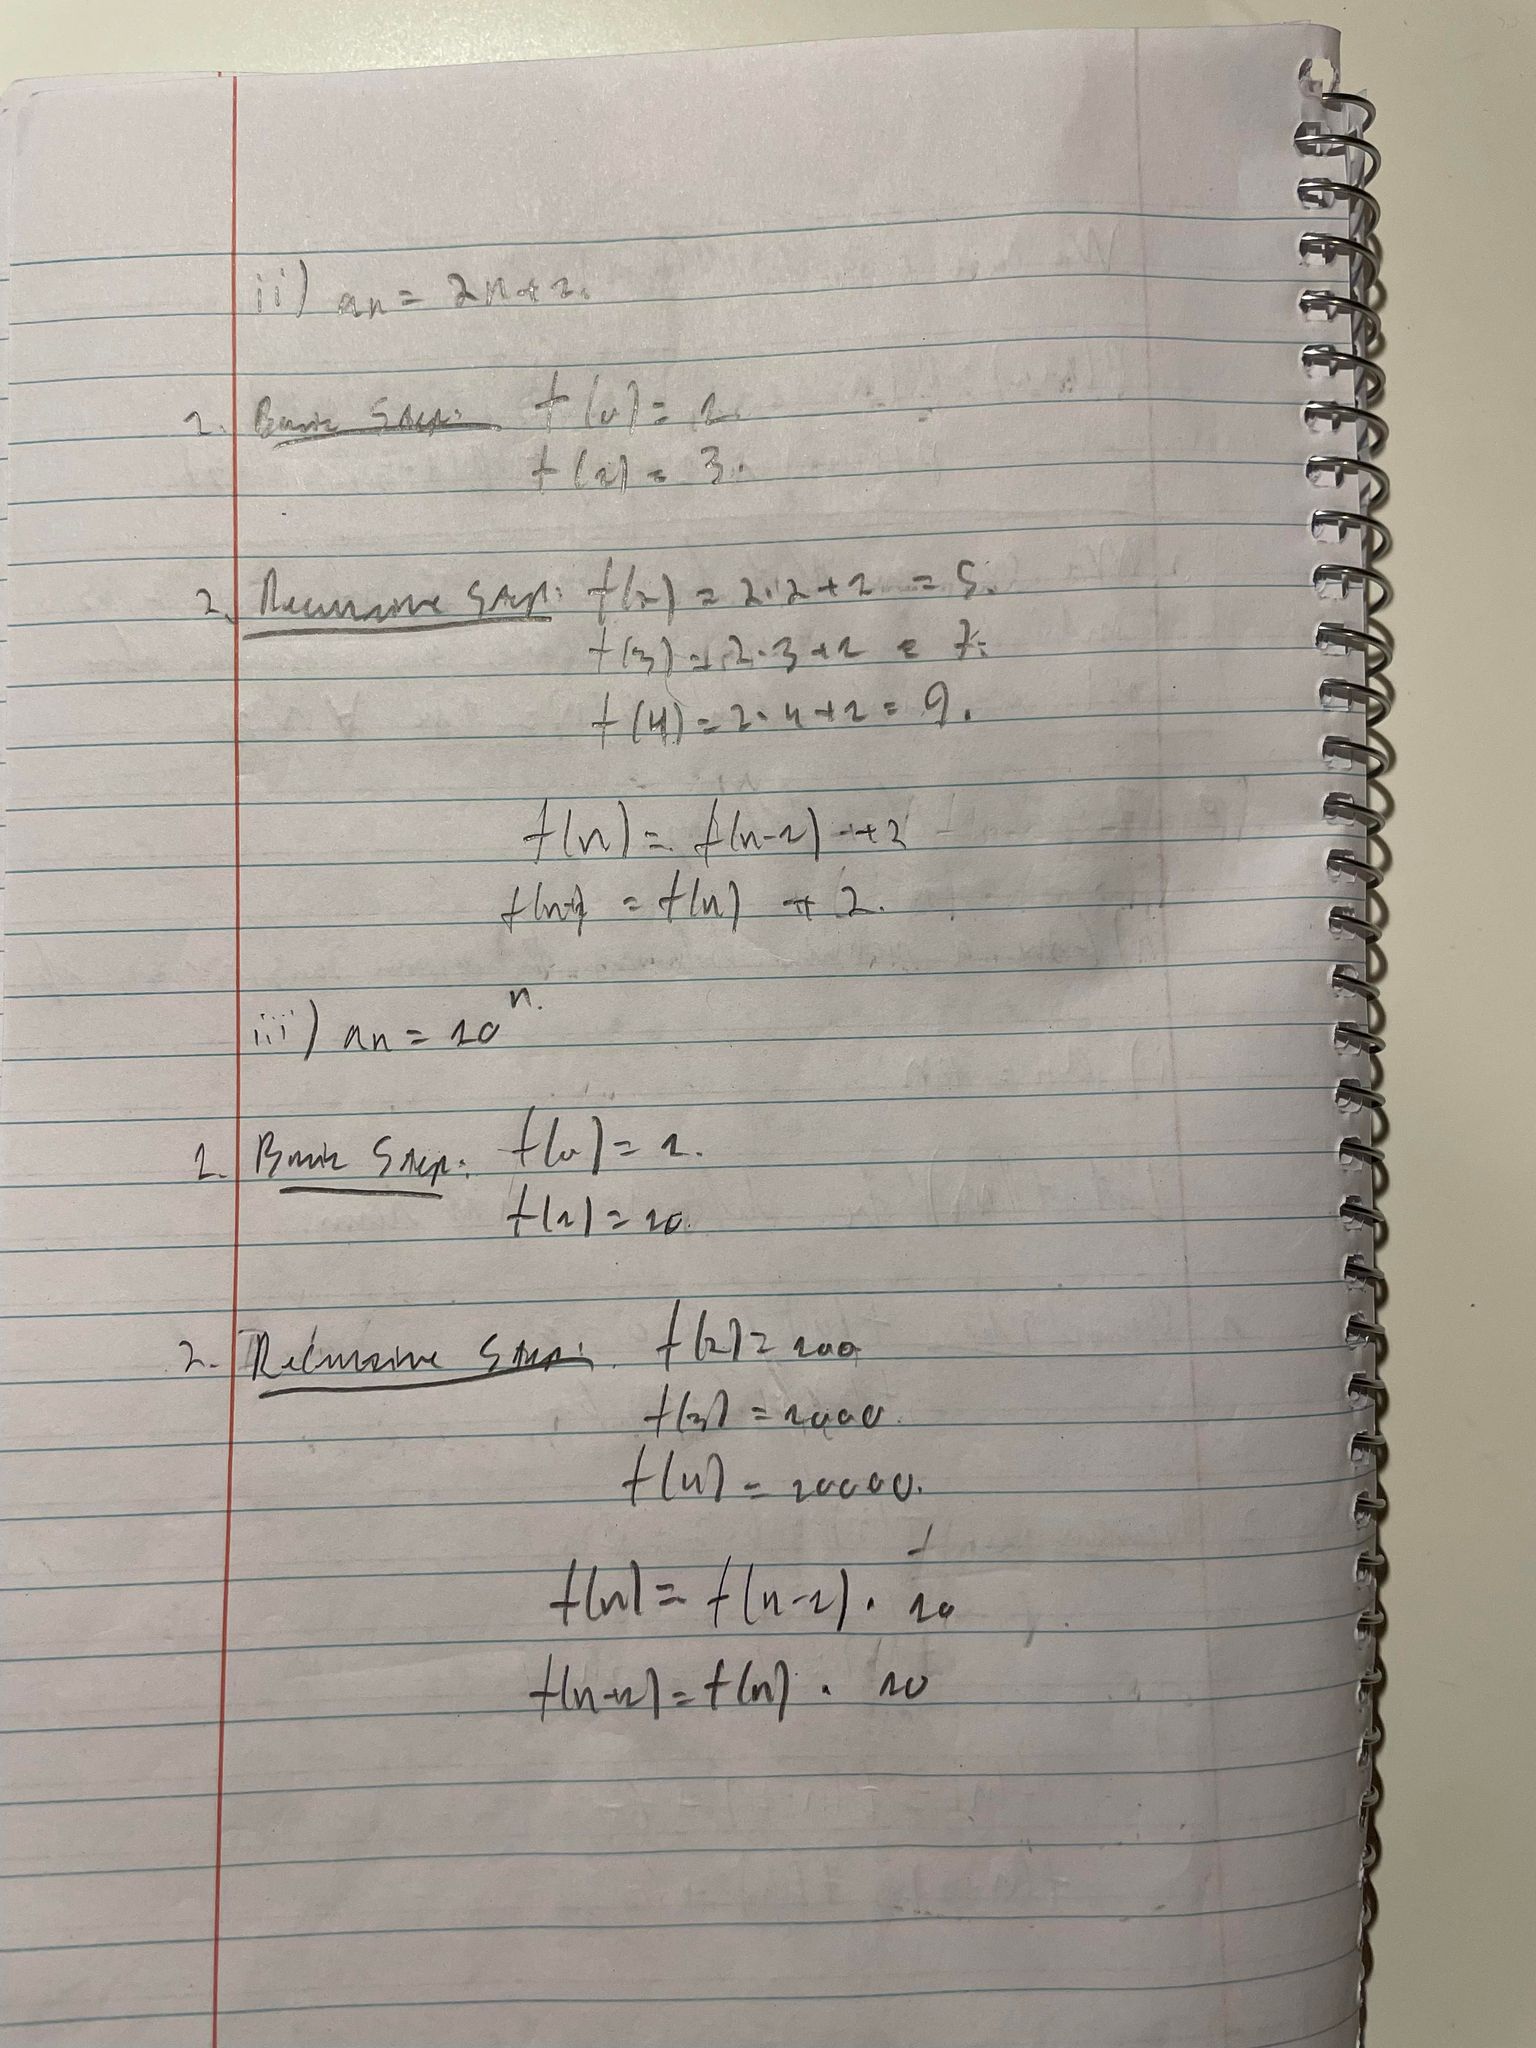 ii) an = 2n+1.
1. Basic Step: f(0) = 1.
f(1) = 3.
2. Recursive Step: f(2) = 2·2+1 = 5.
f(3) = 2·3+1 = 7.
f(4) = 2·4+1 = 9.
f(n) = f(n-1) + 2
f(n+1) = f(n) + 2.
iii) an = 10^n.
1. Basic Step: f(0) = 1.
f(1) = 10.
2. Recursive Step: f(2) = 100
f(3) = 1000.
f(4) = 10000.
f(n) = f(n-1) · 10
f(n+1) = f(n) · 10